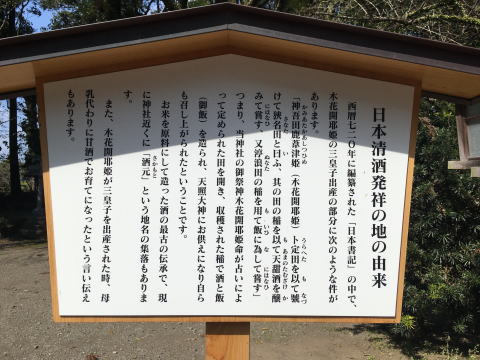 日本清酒発祥の地の由来
西暦七二〇年に編纂された「日本書記」の中で、
木花開耶姫の三皇子出産の部分に次のような件が
あります。
「神吾田鹿葦津姫（木花開耶姫）卜定田を以て號
けて狭名田と曰ふ、其の田の稲を以て天甜酒を醸
みて嘗す、又渟浪田の稲を用て飯に為して嘗す」
つまり、当神社の御祭神木花開耶姫命が占いによ
って定められた田を開き、収穫された稲で酒と飯
（御飯）を造られ、天照大神にお供えになり自ら
も召し上がられたということです。
お米を原料にして造った酒の最古の伝承で、現
に神社近くに「酒元」という地名の集落もありま
す。
また、木花開耶姫が三皇子を出産された時、母
乳代わりに甘酒でお育てになったという言い伝え
もあります。